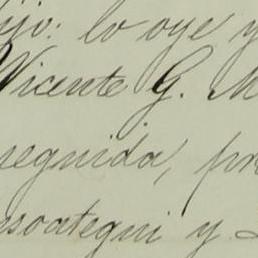 lo oye y
Vicente G. M
seguida, pr
soategui y